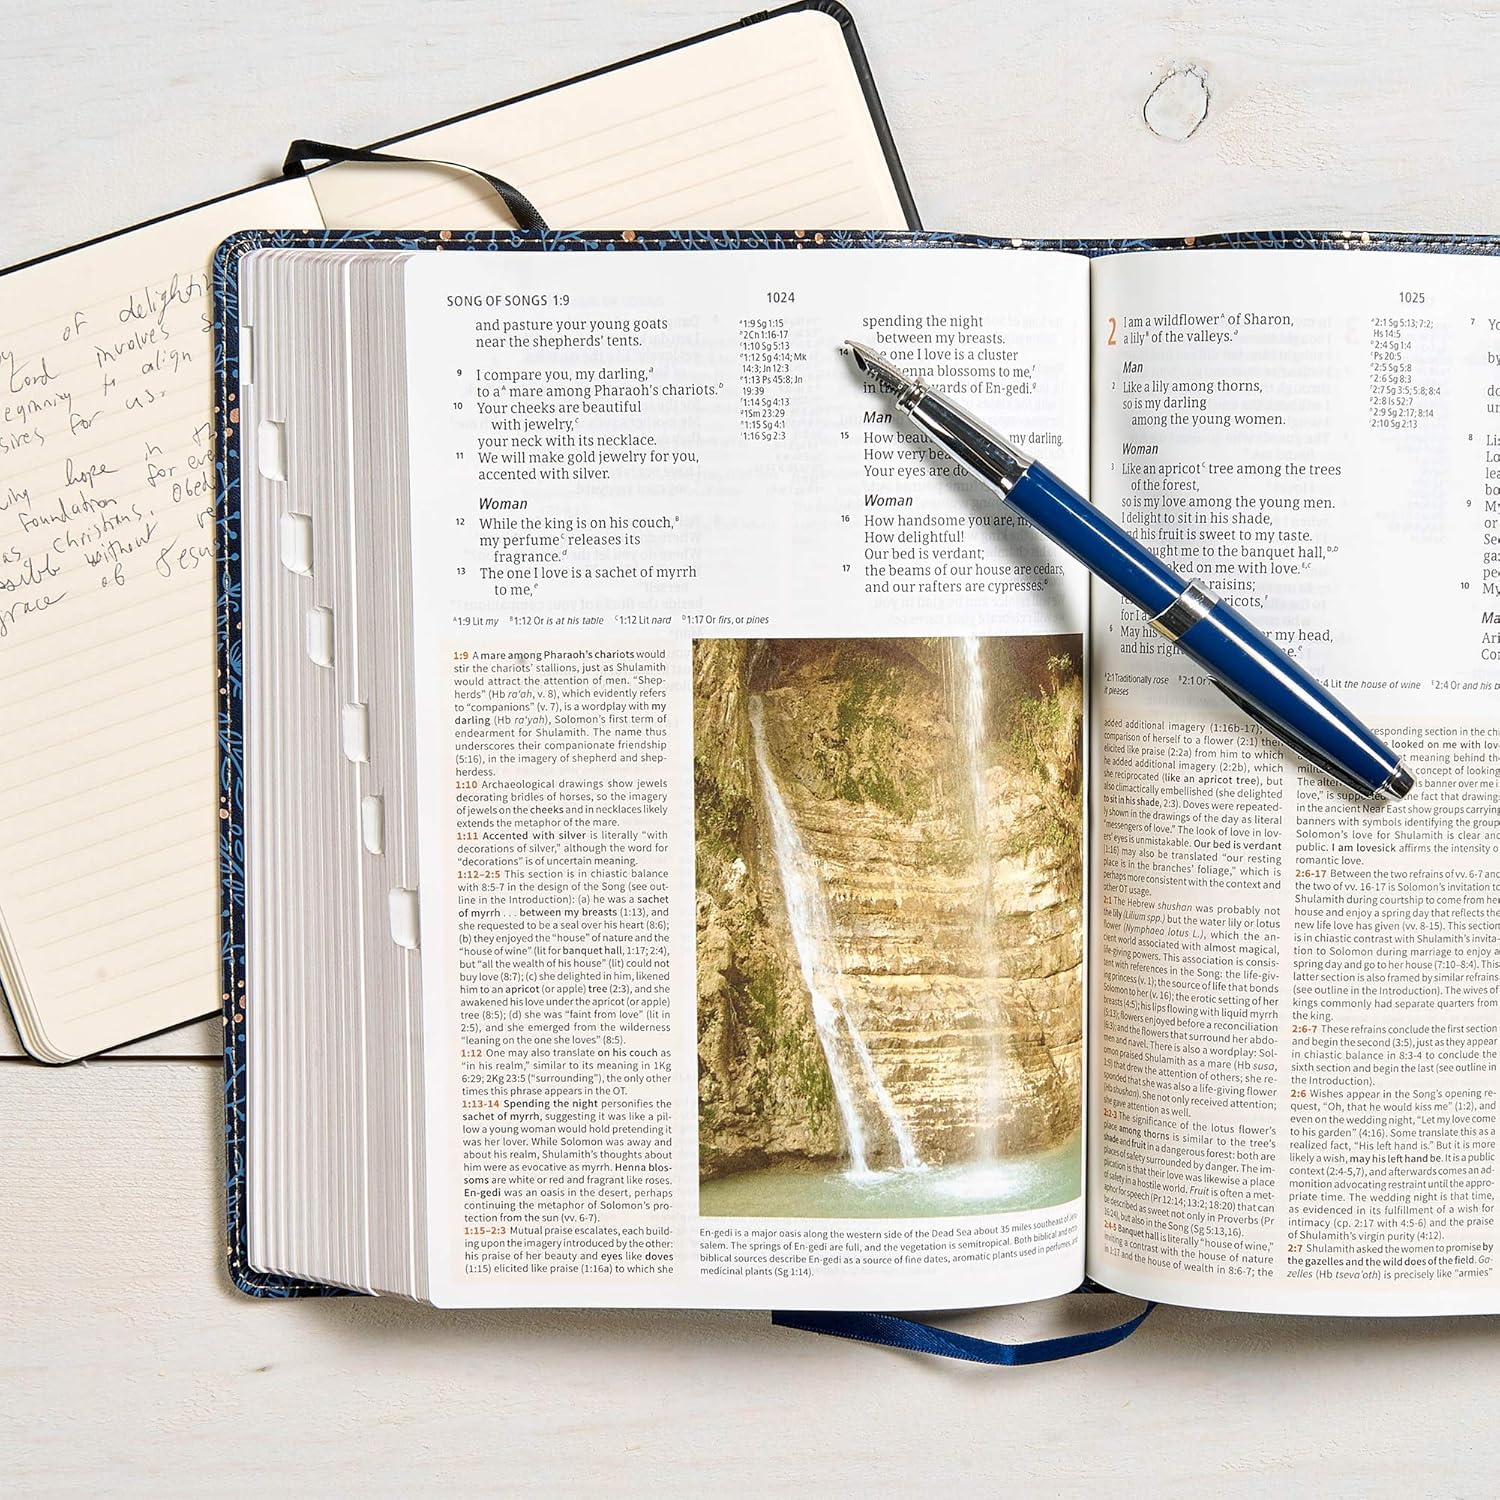 of delighti
Lord involves
beginning to align
sires for us.
hope in
Foundation for eve
as Christians. Obed
ssible without
grace of Jesus
SONG OF SONGS 1:9
1024
and pasture your young goats
near the shepherds' tents.
9 I compare you, my darling,ᵃ
to aᴬ mare among Pharaoh's chariots.ᵇ
10 Your cheeks are beautiful
with jewelry,ᶜ
your neck with its necklace.
11 We will make gold jewelry for you,
accented with silver.
Woman
12 While the king is on his couch,ᴮ
my perfumeᶜ releases its
fragrance.ᵈ
13 The one I love is a sachet of myrrh
to me,ᵉ
ᵃ1:9 Sg 1:15
ᵇ2Ch 1:16-17
ᶜ1:10 Sg 5:13
ᵈ1:12 Sg 4:14; Mk
14:3; Jn 12:3
ᵉ1:13 Ps 45:8; Jn
19:39
ᶠ1:14 Sg 4:13
ᵍ1Sm 23:29
ʰ1:15 Sg 4:1
ⁱ1:16 Sg 2:3
spending the night
between my breasts.
14 one I love is a cluster
henna blossoms to me,ᶠ
in of En-gedi.ᵍ
Man
15 How my darling.
How very
Your eyes are
Woman
16 How handsome you are,
How delightful!
Our bed is verdant;
17 the beams of our house are cedars,
and our rafters are cypresses.ᴰ
ᴬ1:9 Lit my ᴮ1:12 Or is at his table ᶜ1:12 Lit nard ᴰ1:17 Or firs, or pines
1:9 A mare among Pharaoh's chariots would
stir the chariots' stallions, just as Shulamith
would attract the attention of men. "Shep-
herds" (Hb ra'ah, v. 8), which evidently refers
to "companions" (v. 7), is a wordplay with my
darling (Hb ra'yah), Solomon's first term of
endearment for Shulamith. The name thus
underscores their companionate friendship
(5:16), in the imagery of shepherd and shep-
herdess.
1:10 Archaeological drawings show jewels
decorating bridles of horses, so the imagery
of jewels on the cheeks and in necklaces likely
extends the metaphor of the mare.
1:11 Accented with silver is literally "with
decorations of silver," although the word for
"decorations" is of uncertain meaning.
1:12–2:5 This section is in chiastic balance
with 8:5-7 in the design of the Song (see out-
line in the Introduction): (a) he was a sachet
of myrrh . . . between my breasts (1:13), and
she requested to be a seal over his heart (8:6);
(b) they enjoyed the "house" of nature and the
"house of wine" (lit for banquet hall, 1:17; 2:4),
but "all the wealth of his house" (lit) could not
buy love (8:7); (c) she delighted in him, likened
him to an apricot (or apple) tree (2:3), and she
awakened his love under the apricot (or apple)
tree (8:5); (d) she was "faint from love" (lit in
2:5), and she emerged from the wilderness
"leaning on the one she loves" (8:5).
1:12 One may also translate on his couch as
"in his realm," similar to its meaning in 1Kg
6:29; 2Kg 23:5 ("surrounding"), the only other
times this phrase appears in the OT.
1:13-14 Spending the night personifies the
sachet of myrrh, suggesting it was like a pil-
low a young woman would hold pretending it
was her lover. While Solomon was away and
about his realm, Shulamith's thoughts about
him were as evocative as myrrh. Henna blos-
soms are white or red and fragrant like roses.
En-gedi was an oasis in the desert, perhaps
continuing the metaphor of Solomon's pro-
tection from the sun (vv. 6-7).
1:15–2:3 Mutual praise escalates, each build-
ing upon the imagery introduced by the other:
his praise of her beauty and eyes like doves
(1:15) elicited like praise (1:16a) to which she
En-gedi is a major oasis along the western side of the Dead Sea about 35 miles southeast of Jeru-
salem. The springs of En-gedi are full, and the vegetation is semitropical. Both biblical and extra-
biblical sources describe En-gedi as a source of fine dates, aromatic plants used in perfumes, and
medicinal plants (Sg 1:14).
1025
2 I am a wildflowerᴬ of Sharon,
a lilyᴮ of the valleys.ᵃ
Man
2 Like a lily among thorns,
so is my darling
among the young women.
Woman
3 Like an apricotᶜ tree among the trees
of the forest,
so is my love among the young men.
I delight to sit in his shade,
and his fruit is sweet to my taste.
to the banquet hall,ᴰ,ᵇ
on me with love.ᴱ,ᶜ
raisins;
for I
6 May his my head,
and his right
ᵃ2:1 Sg 5:13; 7:2;
Hs 14:5
ᵇ2:4 Sg 1:4
ᶜPs 20:5
ᵈ2:5 Sg 5:8
ᵉ2:6 Sg 8:3
ᶠ2:7 Sg 3:5; 5:8; 8:4
ᵍ2:8 Is 52:7
ʰ2:9 Sg 2:17; 8:14
ⁱ2:10 Sg 2:13
7
8
9
or
10 My
ᴬ2:1 Traditionally rose ᴮ2:1 Or Lit the house of wine ᴱ2:4 Or and his
it pleases
added additional imagery (1:16b-17);
comparison of herself to a flower (2:1) then
elicited like praise (2:2a) from him to which
he added additional imagery (2:2b), which
she reciprocated (like an apricot tree), but
also climactically embellished (she delighted
to sit in his shade, 2:3). Doves were repeated-
ly shown in the drawings of the day as literal
"messengers of love." The look of love in lov-
er's eyes is unmistakable. Our bed is verdant
(1:16) may also be translated "our resting
place is in the branches' foliage," which is
perhaps more consistent with the context and
other OT usage.
2:1 The Hebrew shushan was probably not
the lily (Lilium spp.) but the water lily or lotus
flower (Nymphaea lotus L.), which the an-
cient world associated with almost magical,
life-giving powers. This association is consis-
tent with references in the Song: the life-giv-
ing princess (v. 1); the source of life that bonds
Solomon to her (v. 16); the erotic setting of her
breasts (4:5); his lips flowing with liquid myrrh
(5:13); flowers enjoyed before a reconciliation
(6:3); and the flowers that surround her abdo-
men and navel. There is also a wordplay: Sol-
omon praised Shulamith as a mare (Hb susa,
1:9) that drew the attention of others; she re-
sponded that she was also a life-giving flower
(Hb shushan). She not only received attention;
she gave attention as well.
2:2-3 The significance of the lotus flower's
place among thorns is similar to the tree's
shade and fruit in a dangerous forest: both are
places of safety surrounded by danger. The im-
plication is that their love was likewise a place
of safety in a hostile world. Fruit is often a met-
aphor for speech (Pr 12:14; 13:2; 18:20) that can
be described as sweet not only in Proverbs (Pr
16:24), but also in the Song (Sg 5:13,16).
2:4-5 Banquet hall is literally "house of wine,"
inviting a contrast with the house of nature
in 1:17 and the house of wealth in 8:6-7; the
responding section in the chi
looked on me with love
meaning behind the
concept of looking
The banner over me i
love," is supported the fact that drawings
in the ancient Near East show groups carrying
banners with symbols identifying the group
Solomon's love for Shulamith is clear and
public. I am lovesick affirms the intensity o
romantic love.
2:6-17 Between the two refrains of vv. 6-7 and
the two of vv. 16-17 is Solomon's invitation to
Shulamith during courtship to come from her
house and enjoy a spring day that reflects the
new life love has given (vv. 8-15). This section
is in chiastic contrast with Shulamith's invita-
tion to Solomon during marriage to enjoy a
spring day and go to her house (7:10–8:4). This
latter section is also framed by similar refrains
(see outline in the Introduction). The wives of
kings commonly had separate quarters from
the king.
2:6-7 These refrains conclude the first section
and begin the second (3:5), just as they appear
in chiastic balance in 8:3-4 to conclude the
sixth section and begin the last (see outline in
the Introduction).
2:6 Wishes appear in the Song's opening re-
quest, "Oh, that he would kiss me" (1:2), and
even on the wedding night, "Let my love come
to his garden" (4:16). Some translate this as a
realized fact, "His left hand is." But it is more
likely a wish, may his left hand be. It is a public
context (2:4-5,7), and afterwards comes an ad-
monition advocating restraint until the appro-
priate time. The wedding night is that time,
as evidenced in its fulfillment of a wish for
intimacy (cp. 2:17 with 4:5-6) and the praise
of Shulamith's virgin purity (4:12).
2:7 Shulamith asked the women to promise by
the gazelles and the wild does of the field. Ga-
zelles (Hb tseva'oth) is precisely like "armies"